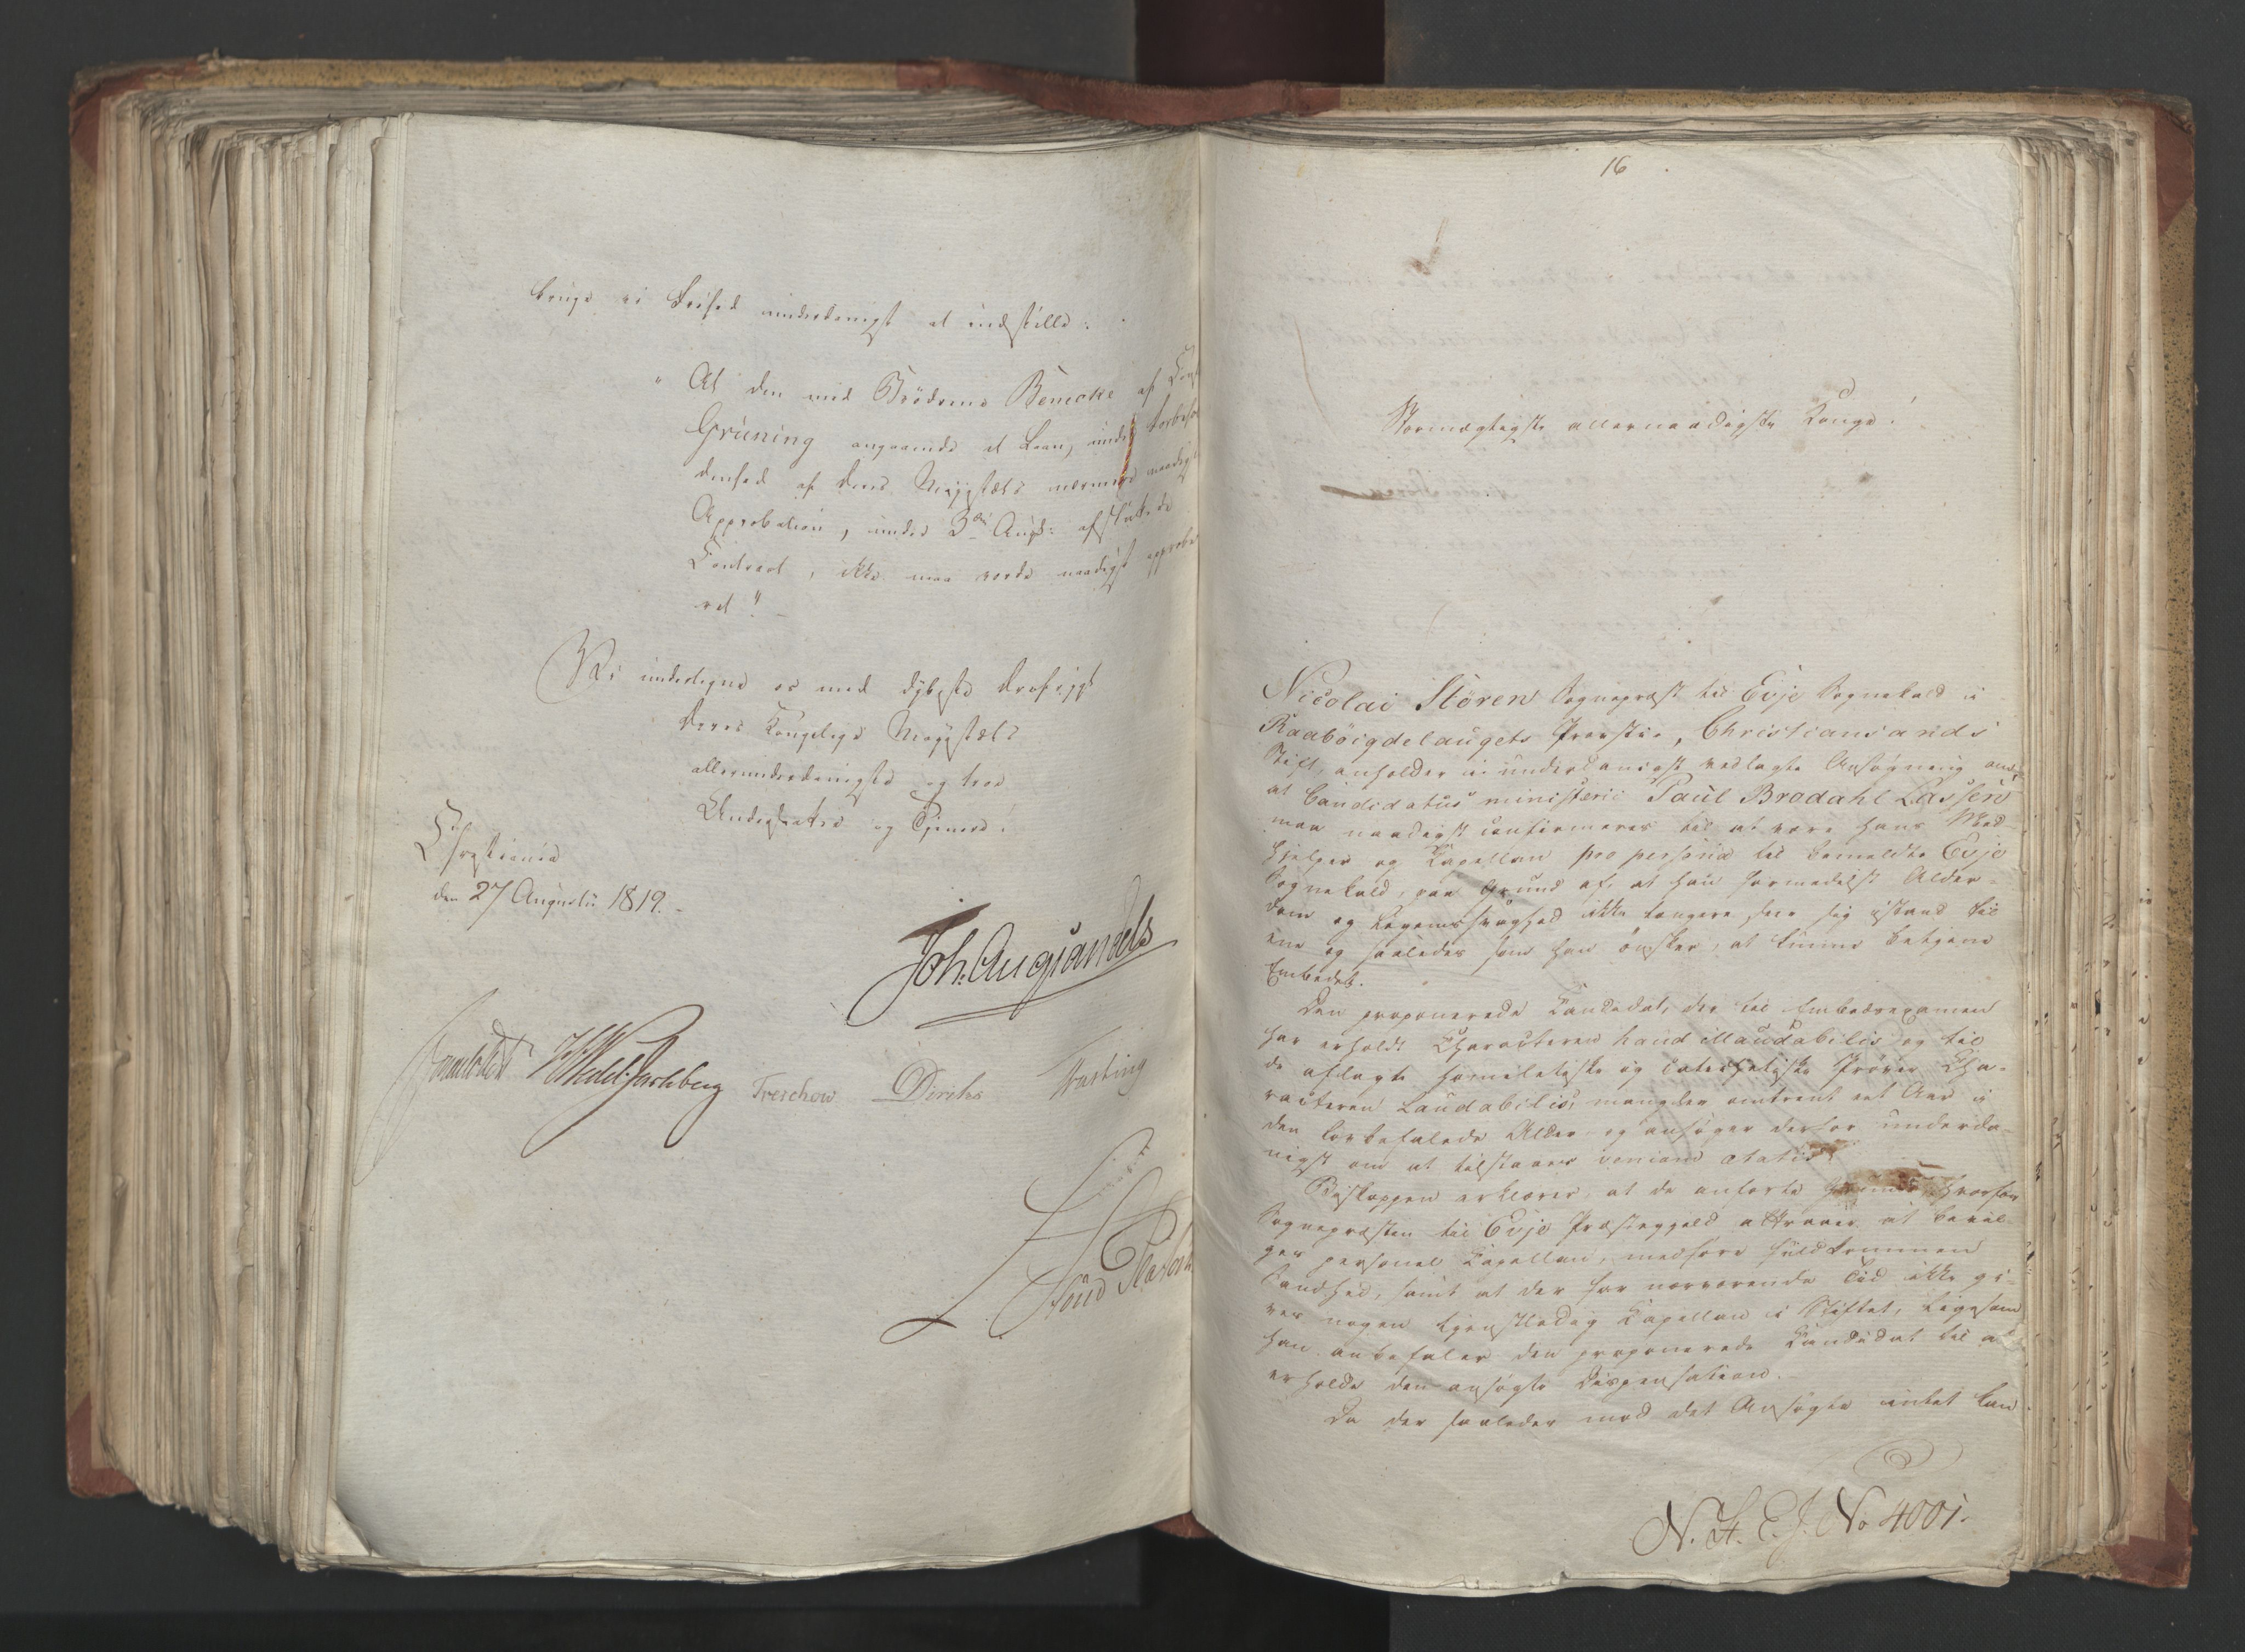 bringe vi herved underdanigst at indstille:
"At den med Brödrene Benecke af
Grüning angaaende et Laan, under Forbehol
denhed af Deres Majestæts nærmere naadigst
Approbation, under 3die Augt: afsluttede
Contract, ikke maa vorde naadigst approbe
ret".
Vi undertegne os med dybeste Ærefrygt
Deres Kongelige Majestæts
allerunderdanigste og troe
Undersaatter og Tjenere:
Christiania
den 27 Augustii 1819.
Joh. Aug Sandels
Sommerhielm HWedel Jarlsberg Treschow Diriks Fasting
16
Stormægtigste allernaadigste Konge!
Nicolai Stören Sognepræst til Evje Sognekald i
Raabóigdelaugets Provstie, Christiansands
Stift, anholder i underdanigst vedlagte Ansøgning om,
at Candidatus ministerii Paul Brodahl Lassen
maa naadigst confirmeres til at være hans Med-
hjelper og Capellan pro persona til bemeldte Evje
Sognekald, paa Grund af, at han formedelst Alder-
dom og Legemssvaghed ikke længere seer sig istand til
ene og saaledes som han ønsker, at kunne betjene
Embedet.
Den proponerede Candidat, der til Embedsexamen
har erholdt Characteren haud illaudabilis og til
de aflagte homiletiske og catechetiske Prøver Cha-
racteren Laudabilis, mangler omtrent eet Aar i
den befalede Alder og ansøger derfor underda-
nigst om at tilstaaes veniam ætatis.
Biskoppen erklærer, at de anførte Grunde, hvorfor
Sognepræsten til Evje Præstegjeld attraaer at bevil-
ges personel Capellan, medføre fuldkommen
Sandhed, samt at der for nærværende Tid ikke gi-
ves nogen tjenstledig Capellan i Stiftet, ligesom
han anbefaler den proponerede Candidat til at
erholde den ansøgte Dispensation.
Da der saaledes mod det Ansøgte intet kan
N. H. E. J. No 4001.